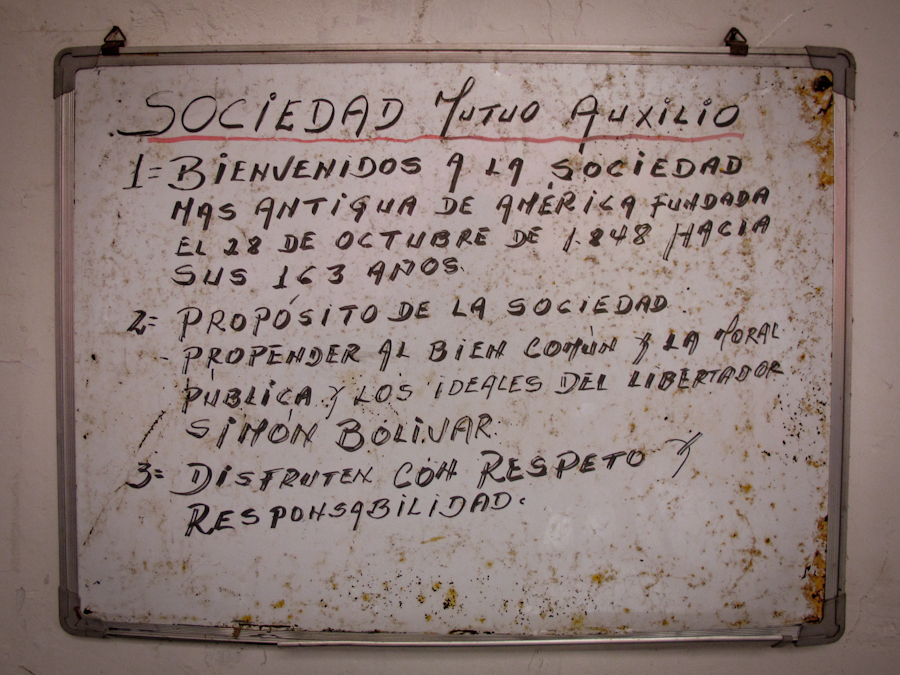 SOCIEDAD MUTUO AUXILIO
1= BIENVENIDOS A LA SOCIEDAD
MAS ANTIGUA DE AMÉRICA FUNDADA
EL 28 DE OCTUBRE DE 1.848 HACIA
SUS 163 AÑOS.
2= PROPÓSITO DE LA SOCIEDAD
PROPENDER AL BIEN COMÚN Y LA MORAL
PÚBLICA Y LOS IDEALES DEL LIBERTADOR
SIMÓN BOLIVAR.
3= DISFRUTEN CON RESPETO Y
RESPONSABILIDAD.